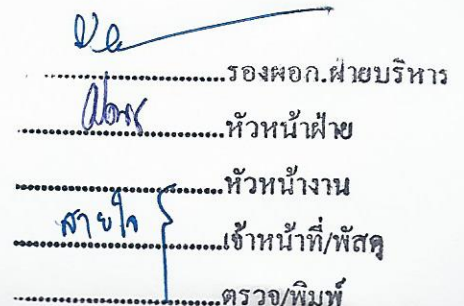 ....................รองผอก.ฝ่ายบริหาร
....................หัวหน้าฝ่าย
....................หัวหน้างาน
สายใจ ....................เจ้าหน้าที่/พัสดุ
....................ตรวจ/พิมพ์